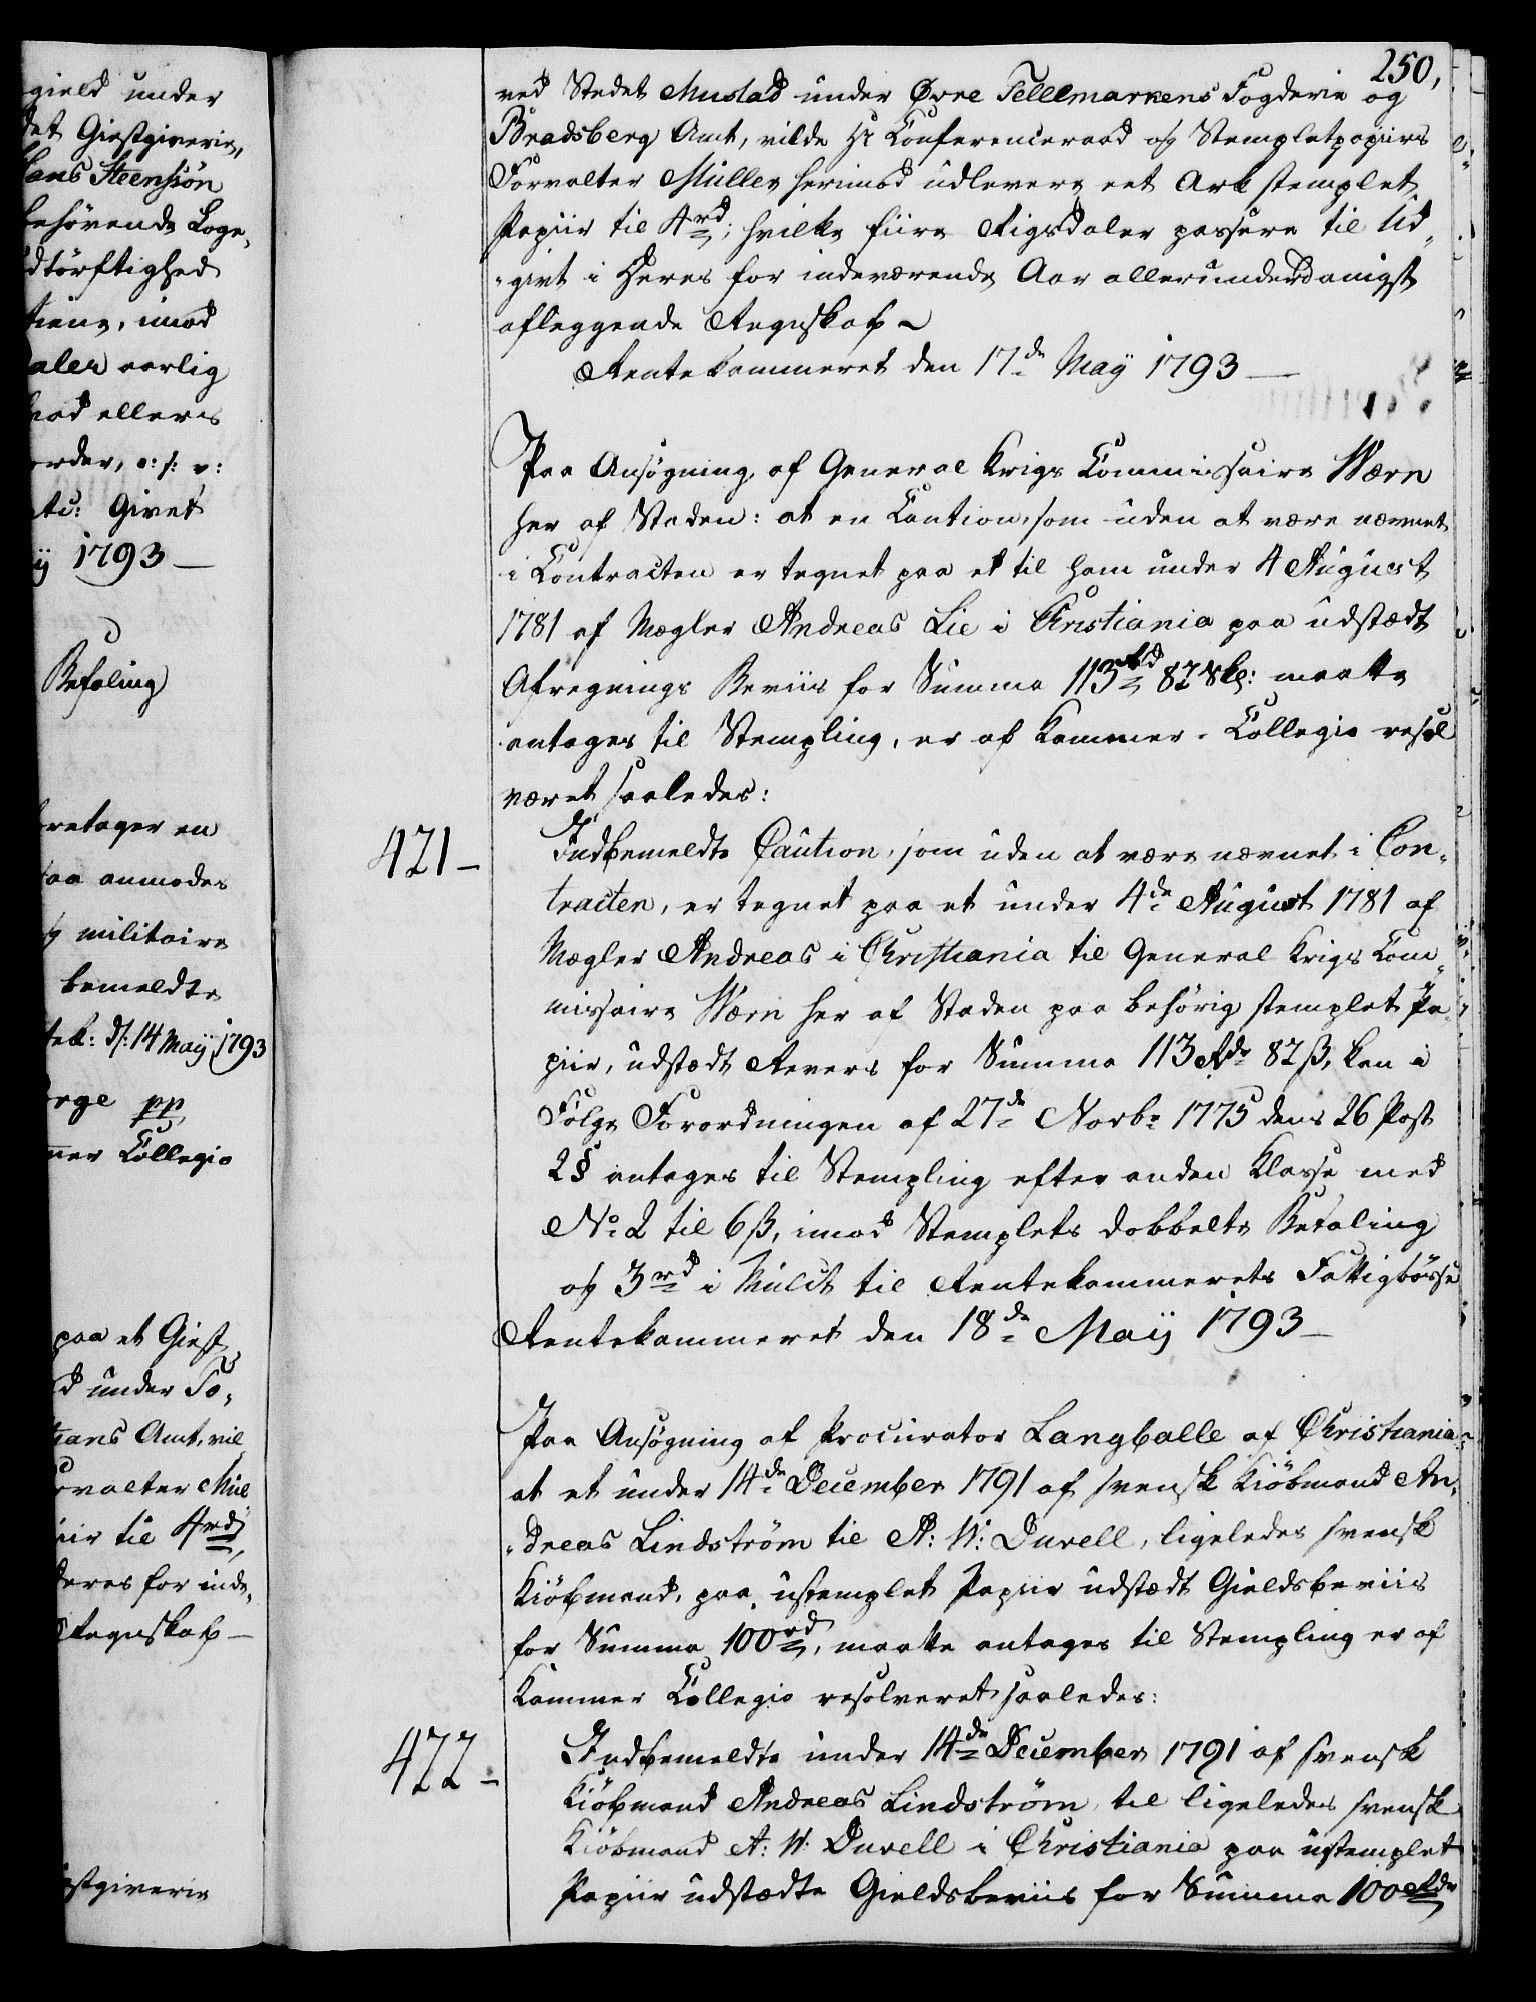 gield under
det Giestgiverie,
Hans Steensøn
behørende Loge„
dtörftighed
tiene, imod
aler aarlig
hvad ellers
order, o: s: v:
etc: Givet
y 1793 —
Befaling
foretager en
saa anmodes
og militaire
bemeldte
tek: d: 14 Maÿ 1793
orge pp
mer Collegio
paa et Giest
d under Fo„
tians Amt, vil
orvalter Mül
iir til 4rd
deres for inde„
Regnskab —
estgiverie
250,
ved Stedet Mustad under Øvre Tellemarkens Fogderie og
Bradsberg Amt, vilde Hr Conferenceraad og Stempletpapiirs
Forvalter Müller herimod udlevere eet Ark stemplet
Papiir til 4rd; hvilke fiire Rigsdaler passere til Ud„
„givt i Deres for indeværende Aar allerunderdanigst
aflæggende Regnskab ~
Rentekammeret den 17de Maÿ 1793 —
Paa Ansögning af General Krigs Commissaire Wærn
her af Staden: at en Caution, som uden at være nævnet
i Contracten er tegnet paa et til ham under 4 August
1781 af Mægler Andreas Lie i Christiania paa udstædt
Afregnings Beviis for Summa 113Rd 82 Sk: maatte
antages til Stempling, er af Kammer-Collegio resol
veret saaledes:
421 —
Indbemeldte Caution, som uden at være nævnet i Con„
tracten, er tegnet paa et under 4de August 1781 af
Mægler Andreas i Christiania til General Krigs Com„
missaire Wærn her af Staden paa behörig stemplet Pa„
piir, udstædt Revers for Summa 113 Rdr 82 ß, kan i
Fölge Forordningen af 27de Novbr 1775 dens 26 Post
2 § antages til Stempling efter anden Klasse med
No 2 til 6 ß, imod Stemplets dobbelte Betaling
og 3rd i Mulct til Rentekammerets Fattigbösse
Rentekammeret den 18de Maÿ 1793 —
Paa Ansögning af Procurator Langballe af Christiania
at et under 14de December 1791 af svensk Kiöbmand An„
„dreas Lindström til A: W: Duvell, ligeledes svensk
Kiöbmand, paa ustemplet Papiir udstædt Gieldsbeviis
for Summa 100rd, maatte antages til Stempling er af
Kammer Collegio resolveret saaledes:
422 —
Indbemeldte under 14de December 1791 af svensk
Kiöbmand Andreas Lindström til ligeledes svensk
Kiöbmand A: W: Duvell i Christiania paa ustemplet
Papiir udstædte Gieldsbeviis for Summa 100 Rdr